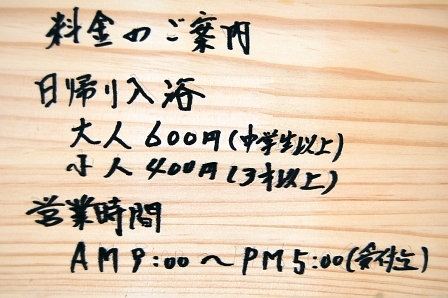 料金のご案内
日帰り入浴
大人 600円(中学生以上)
小人 400円(3才以上)
営業時間
AM9:00～PM5:00(受付